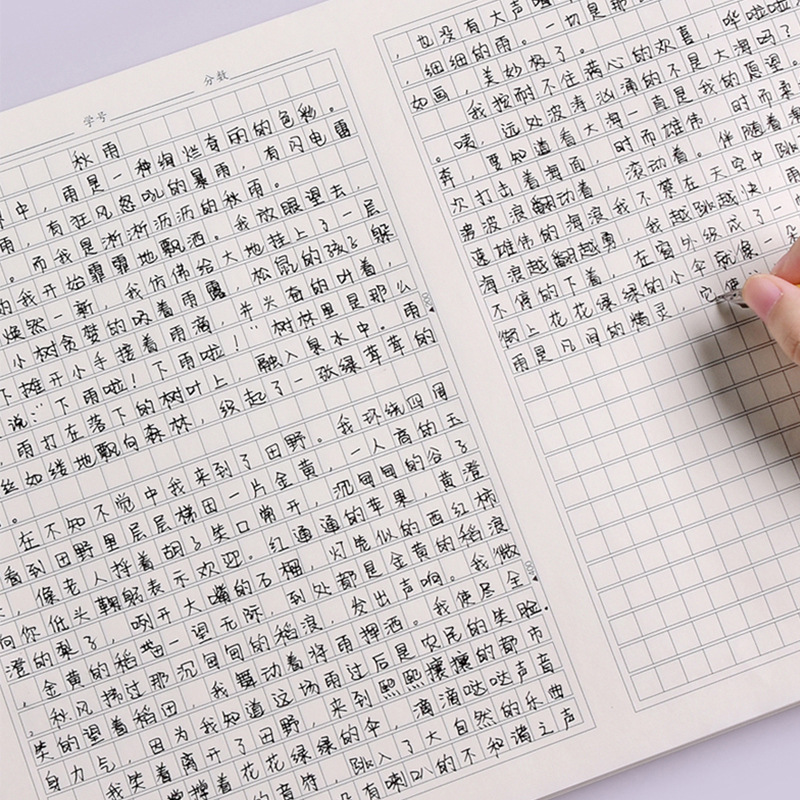 学号
分数
秋雨
中，雨是一种绚烂奇丽的色彩。
雨，有狂风怒吼的暴雨，有闪电雷
。而我是淅淅沥沥的秋雨。
的我开始霏霏地飘洒。我放眼望去，
焕然一新，我仿佛给大地挂上了一层
小树贪婪的吸着雨露，松鼠的孩子躲
下摊开小手接着雨滴，并头奋的叫着，
说：“下雨啦！下雨啦！”树林里是那么
，雨打在落下的树叶上，融入泉水中。雨
丝如缕地飘向森林，织起了一张绿茸茸的
。
在不知不觉中我来到了田野。我环绕四周
看到田野里层层梯田一片金黄，一人高的玉
，像老人捋着胡子笑口常开，沉甸甸的谷子
向你低头鞠躬表示欢迎。红通通的苹果，黄澄
澄的梨子，咧开大嘴的石榴，灯笼似的西红柿
，金黄的稻田一望无际，到处都是金黄的稻浪
，秋风拂过那沉甸甸的稻浪，发出声响。我微
笑的望着稻田，我舞动着将雨挥洒。我使尽全
身力气，因为我知道这场雨过后是农民的笑脸。
我笑着离开了田野，来到熙熙攘攘的都市
撑着花花绿绿的伞，滴滴哒哒声音
的音符，跳入了大自然的乐曲
没有喇叭的不和谐之声
，也没有大声
，细细的雨。一切是那
如画，美妙极了。
我按耐不住满心的欢喜，哗啦啦
。咦，远处波涛汹涌的不是大海吗？
奔，要知道看大海一直是我的愿望。
次打出着海面，时而雄伟，时而柔
弗波浪翻动着，滚动着。伴随着海
速雄伟的海浪我不禁在天空中跳
海浪越翻越勇，我越跳越快，雨
不停的下着，在窗外级成了一
街上花花绿绿的小伞就像一朵
雨是凡间的精灵，它